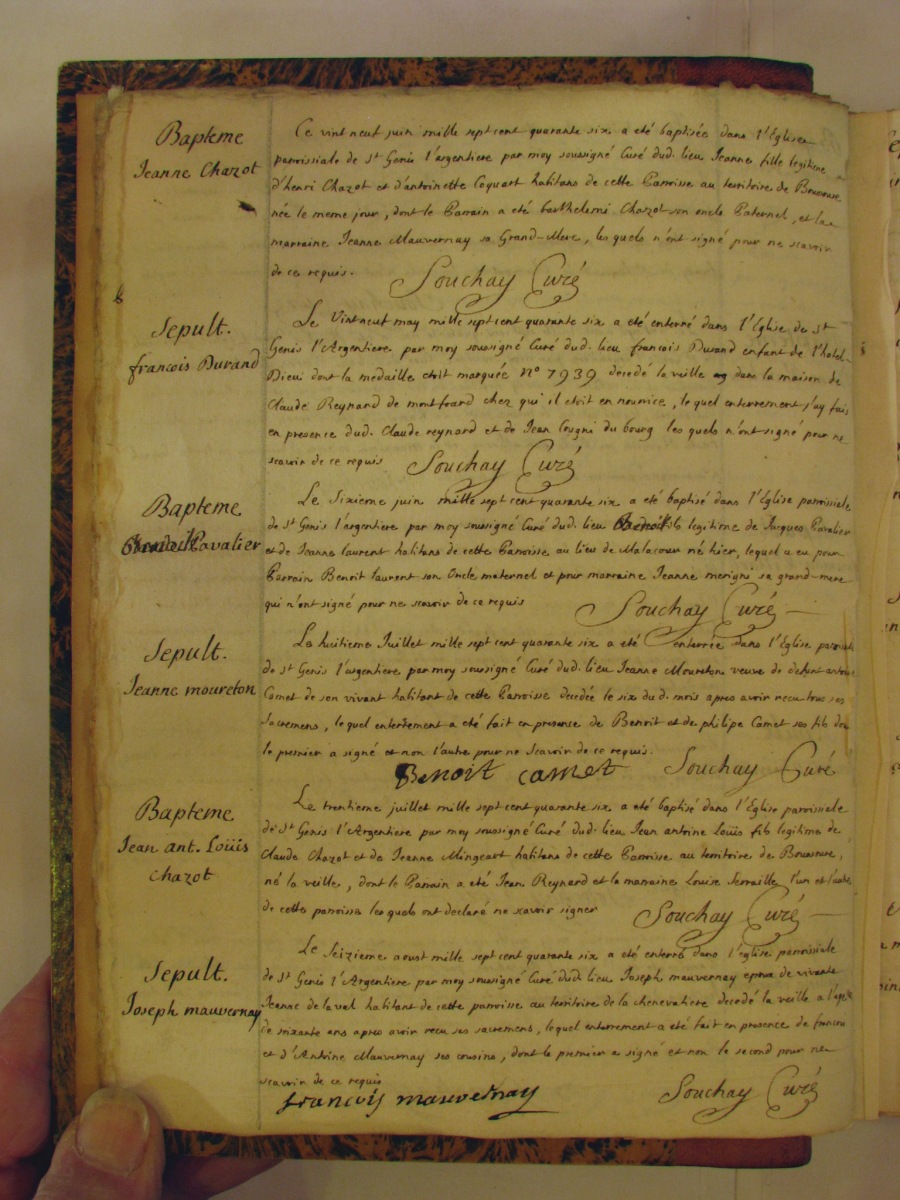 Bapteme
Jeanne Chazot
Ce vint neuf juin mille sept cent quarante six a eté baptisée dans l'Eglise
parroissiale de st Genis l'argentiere par moy soussigné Curé dud. lieu Jeanne fille legitime
d'henri Chazot et d'antoinette Coquart habitans de cette Parroisse au territoire de
née le meme jour, dont le Parrain a eté barthelemi Chazot son oncle Paternel, et la
marraine Jeanne Mauvernay sa Grand-Mere, les quels n'ont signé pour ne scavoir
de ce requis.
Souchay Curé
Sepult.
françois Durand
Le Vint neuf may mille sept cent quarante six a eté enterré dans l'Eglise de st
Genis l'Argentiere par moy soussigné Curé dud. lieu françois Durand enfant de l'hotel-
Dieu dont la medaille etoit marquée n° 7939 decedé la veille dans la maison de
Claude Reynard de montfoard chez qui il etoit en nourice, le quel enterrement j'ay fais
en presence dud. Claude reynard et de Jean du bourg les quels n'ont signé pour ne
scavoir de ce requis
Souchay Curé
Bapteme
Benoit Cavalier
Le Sixieme juin mille sept cent quarante six a eté baptisé dans l'Eglise parroissiale
de st Genis l'argentiere par moy soussigné Curé dud. lieu Benoit fils legitime de Jacques Cavalier
et de Jeanne laurent habitans de cette Parroisse au lieu de Malacour né hier, lequel a eu pour
Parrain Benoit laurent son Oncle maternel et pour marraine Jeanne merigni sa grand-mere
qui n'ont signé pour ne scavoir de ce requis
Souchay Curé
Sepult.
Jeanne moureton
Le huitieme Juillet mille sept cent quarante six a eté enterrée dans l'Eglise paroissi
de st Genis l'argentiere par moy soussigné Curé dud. lieu Jeanne Moureton veuve de defunt antoine
Camet de son vivant habitant de cette Parroisse decedée le six dud. mois apres avoir recu tous ses
sacremens, le quel enterrement a eté fait en presence de Benoit et de philipe Camet ses fils dont
le premier a signé et non l'autre pour ne Scavoir de ce requis.
Benoit camet
Souchay Curé
Bapteme
Jean ant. Loüis
chazot
Le trentieme juillet mille sept cent quarante six a eté baptisé dans l'Eglise parroissiale
de st Genis l'Argentiere par moy soussigné Curé dud. lieu Jean antoine Loüis fils legitime de
Claude Chazot et de Jeanne Mingeart habitans de cette Parroisse au territoire de
né la veille, dont le Parrain a eté Jean Reynard et la marraine Louise Serraille l'un et l'autre
de cette paroisse les quels ont declaré ne scavoir signer
Souchay Curé
Sepult.
Joseph mauvernay
Le Seizieme aoust mille sept cent quarante six a eté enterré dans l'église parroissiale
de st Genis l'Argentiere par moy soussigné Curé dud. lieu Joseph mauvernay epoux de vivante
Jeanne delaval habitant de cette parroisse au territoire de la chenevatiere decedé la veille a l'age
de soixante ans apres avoir recu ses sacremens, lequel enterrement a eté fait en presence de francou
et d'Antoine Mauvernay ses cousins, dont le premier a signé et non le second pour ne
scavoir de ce requis
francois mauvernay
Souchay Curé